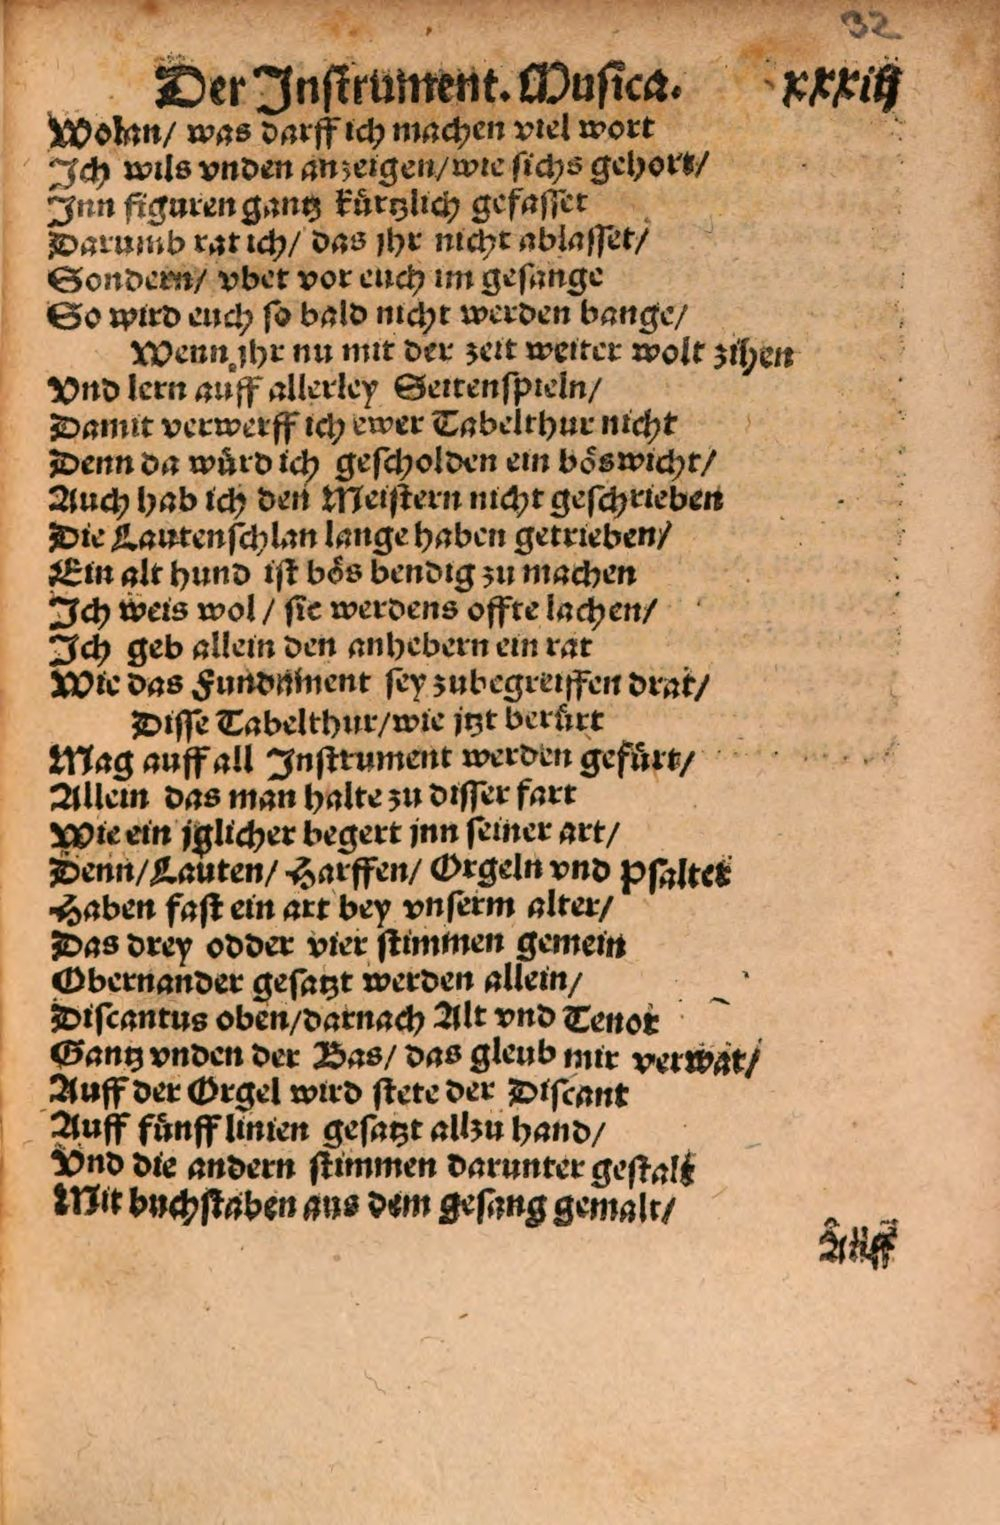 32
Der Instrument. Musica. xxxiij
Wolan/ was darff ich machen viel wort
Ich wils vnden anzeigen/wie sichs gehort/
Inn figuren gantz kürtzlich gefasset
Darumb rat ich/ das jhr nicht ablasset/
Sondern/ vbet vor euch im gesange
So wird euch so bald nicht werden bange/
Wenn jhr nu mit der zeit weiter wolt zihen
Vnd lern auff allerley Seitenspieln/
Damit verwerff ich ewer Tabelthur nicht
Denn da würd ich gescholden ein böswicht/
Auch hab ich den Meistern nicht geschrieben
Die Lautenschlan lange haben getrieben/
Ein alt hund ist bös bendig zu machen
Ich weis wol/ sie werdens offte lachen/
Ich geb allein den anhebern ein rat
Wie das Fundament sey zubegreiffen drat/
Disse Tabelthur/wie jtzt berürt
Mag auff all Instrument werden gefürt/
Allein das man halte zu disser fart
Wie ein jglicher begert jnn seiner art/
Denn/Lauten/ Harffen/ Orgeln vnd Psalter
Haben fast ein art bey vnserm alter/
Das drey odder vier stimmen gemein
Obernander gesatzt werden allein/
Discantus oben/darnach Alt vnd Tenor
Gantz vnden der Bas/ das gleub mir verwar/
Auff der Orgel wird stete der Discant
Auff fünff linien gesatzt allzu hand/
Vnd die andern stimmen darunter gestalt
Mit buchstaben aus dem gesang gemalt/
Auff